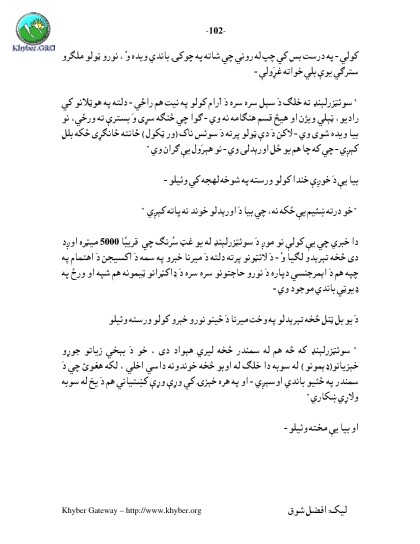 -102-
Khyber.ORG
کولي - په درست بس کي چپ له روني چي شاته په چوکۍ باندي ويده وُ ، نورو ټولو ملګرو
سترګي يوې بلي خواته غړولې -
" سوئټزرلېنډ ته خلګ دَ سېل سره سره دَ آرام کولو په نيت هم راځي - دلته په هوټلانو کي
راديو ، ټېلي ويژن او هيڅ قسم هنګامه نه وي - ګوا چي څنګه سړی وَ بسترې ته ورځي، نو
بيا ويده شوی وي - لاکن دَ دې ټولو پرته دَ سوئس ناک (ور ټکول) ځانته ځانګړی څکه بلل
کېږي - چي که چا هم يو ځل اورېدلی وي - نو هېرَول يې ګران وي "
بيا يې دَ خوږې خندا کولو ورسته په شوخه لهجه کي وئيلو -
" خو درته ښئيم يې ځکه نه، چي بيا دَ اورېدلو خوند نه پاته کېږي "
دا خبري چي يې کولې نو موږ دَ سوئټزرلېنډ له يو غټ سُرنګ چي قريبًا 5000 ميټره اوږد
دی څخه تېرېدو لګيا وُ - دَ لائټونو پرته دلته دَ ميرنا خبرو په سمه دَ اکسيجن دَ اهتمام په
چپه هم دَ ايمرجنسي دپاره دَ نورو حاجتونو سره سره دَ ډاکټرانو ټيمونه هم شپه او ورځ په
ډيوټي باندي موجود وي -
دَ يو بل ټنل څخه تېرېدلو په وخت ميرنا دَ ځينو نورو خبرو کولو ورسته وئيلو
" سوئټزرلېنډ که څه هم له سمندر څخه ليري هېواد دی ، خو دَ بېخي زياتو جوړو
خېزيانو(ډېمونو) له سوبه دا خلګ له اوبو څخه خوندونه داسي اخلي ، لکه هغوئ چي دَ
سمندر په څنډو باندي اوسېږي - او په هره خېزۍ کي وړې وړې کښتيانې هم دَ يخ له سوبه
ولاړې ښکاري "
او بيا يې مخته وئيلو -
ليک: افضل شوق
Khyber Gateway – http://www.khyber.org